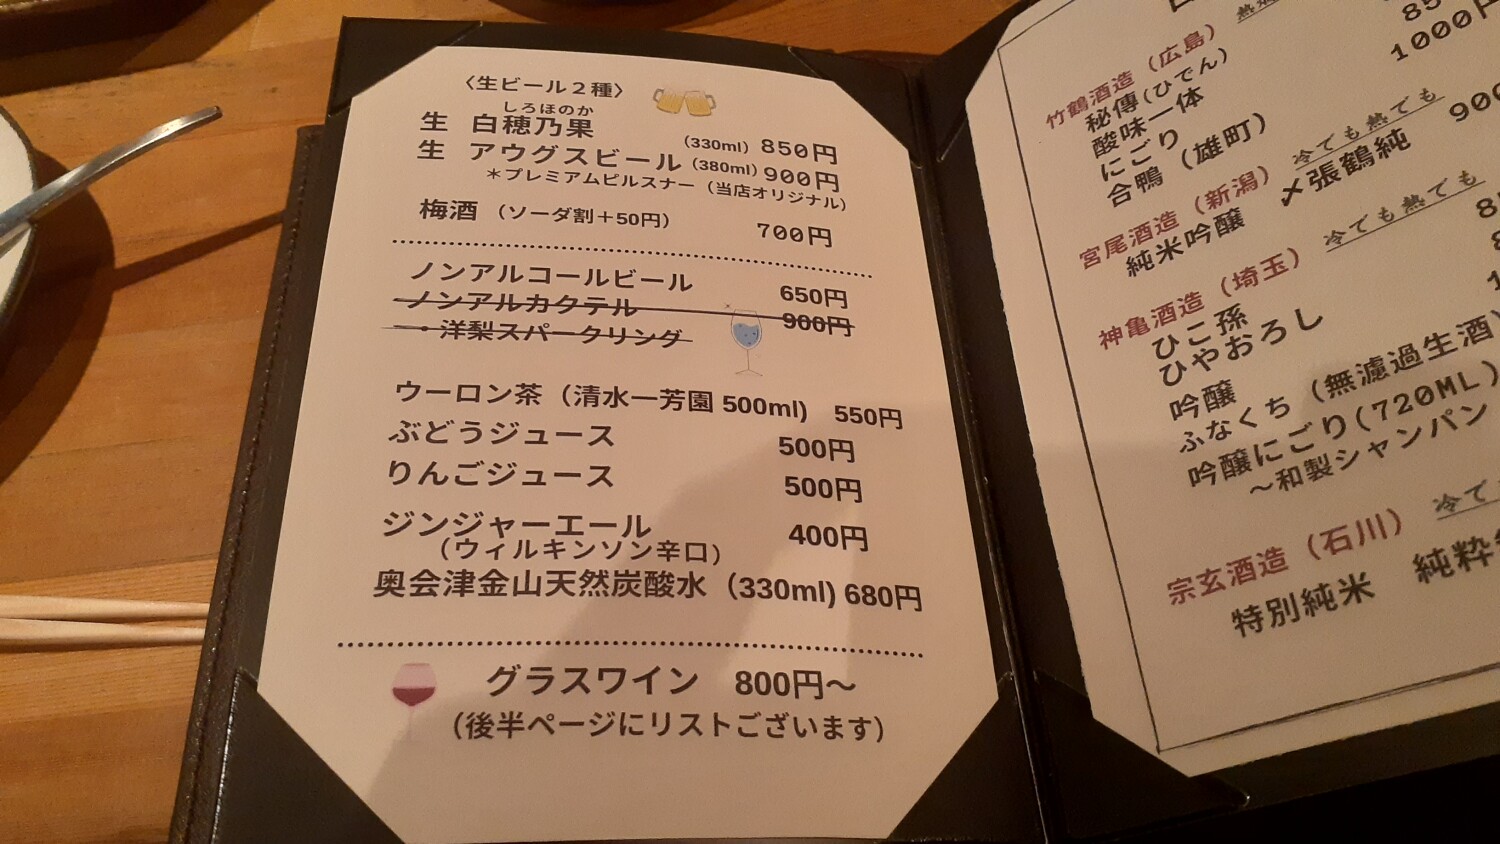 〈生ビール２種〉
しろほのか
生 白穂乃果 (330ml) 850円
生 アウグスビール (380ml) 900円
＊プレミアムピルスナー（当店オリジナル）
梅酒 （ソーダ割＋50円） 700円
ノンアルコールビール 650円
ノンアルカクテル 900円
洋梨スパークリング
ウーロン茶（清水一芳園 500ml) 550円
ぶどうジュース 500円
りんごジュース 500円
ジンジャーエール 400円
（ウィルキンソン辛口）
奥会津金山天然炭酸水（330ml) 680円
グラスワイン 800円～
（後半ページにリストございます）
1000円
竹鶴酒造（広島）
秘傳(ひでん)
酸味一体
にごり
合鴨（雄町）
冷でも熱でも
宮尾酒造（新潟）
純米吟醸 〆張鶴純
冷でも熱でも
神亀酒造（埼玉）
ひこ孫
ひやおろし
吟醸
ふなくち（無濾過生酒）
吟醸にごり(720ML)
～和製シャンパン
宗玄酒造（石川）
特別純米 純粋